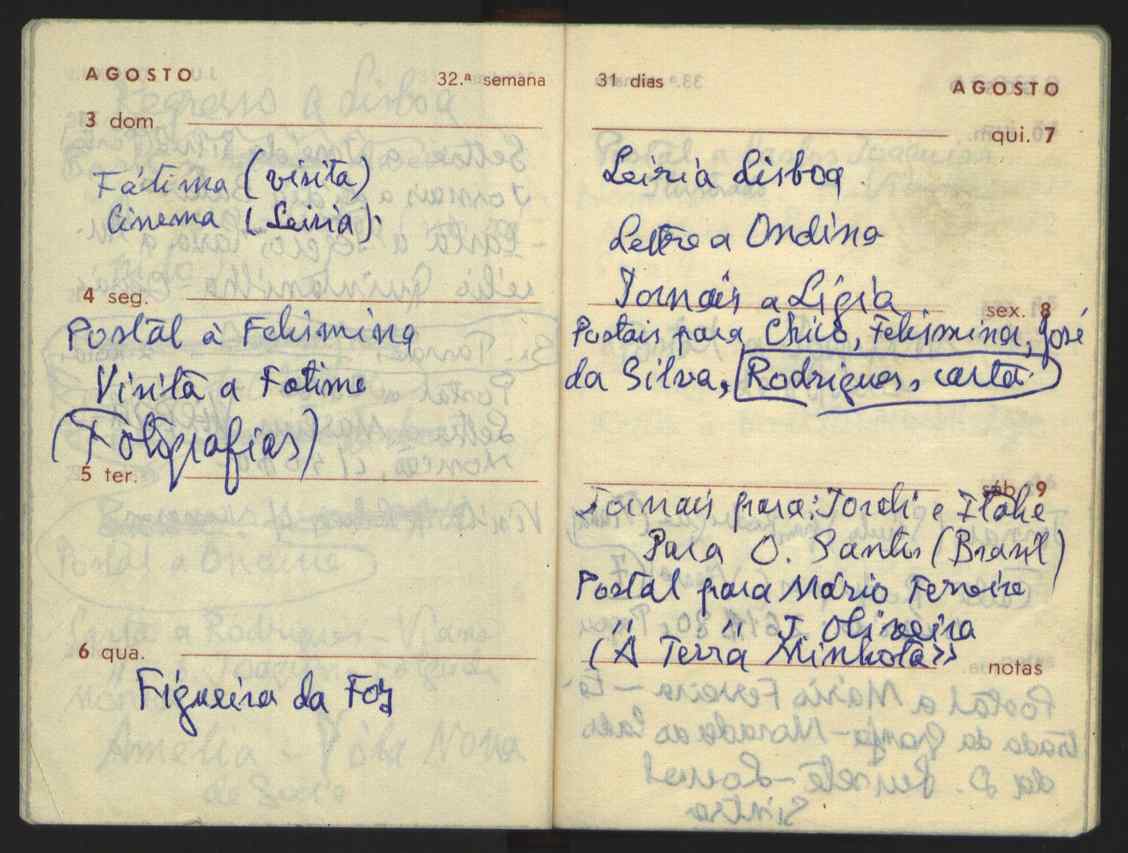 AGOSTO 32.ª semana
3 dom.
Fátima (visita)
Cinema (Leiria).
4 seg.
Postal à Felismina
Visita a Fátima
(Fotografias)
5 ter.
6 qua.
Figueira da Foz
31 dias AGOSTO
qui. 7
Leiria Lisboa
Lettre a Ondina
Jornais a Ligia
sex. 8
Postais para Chico, Felismina, José
da Silva, Rodrigues, carta
sáb. 9
Jornais para: Jordi e
Para O. Santos (Brasil)
Postal para Mário Ferreira
" " J. Oliveira
("A Terra Minhota»
notas